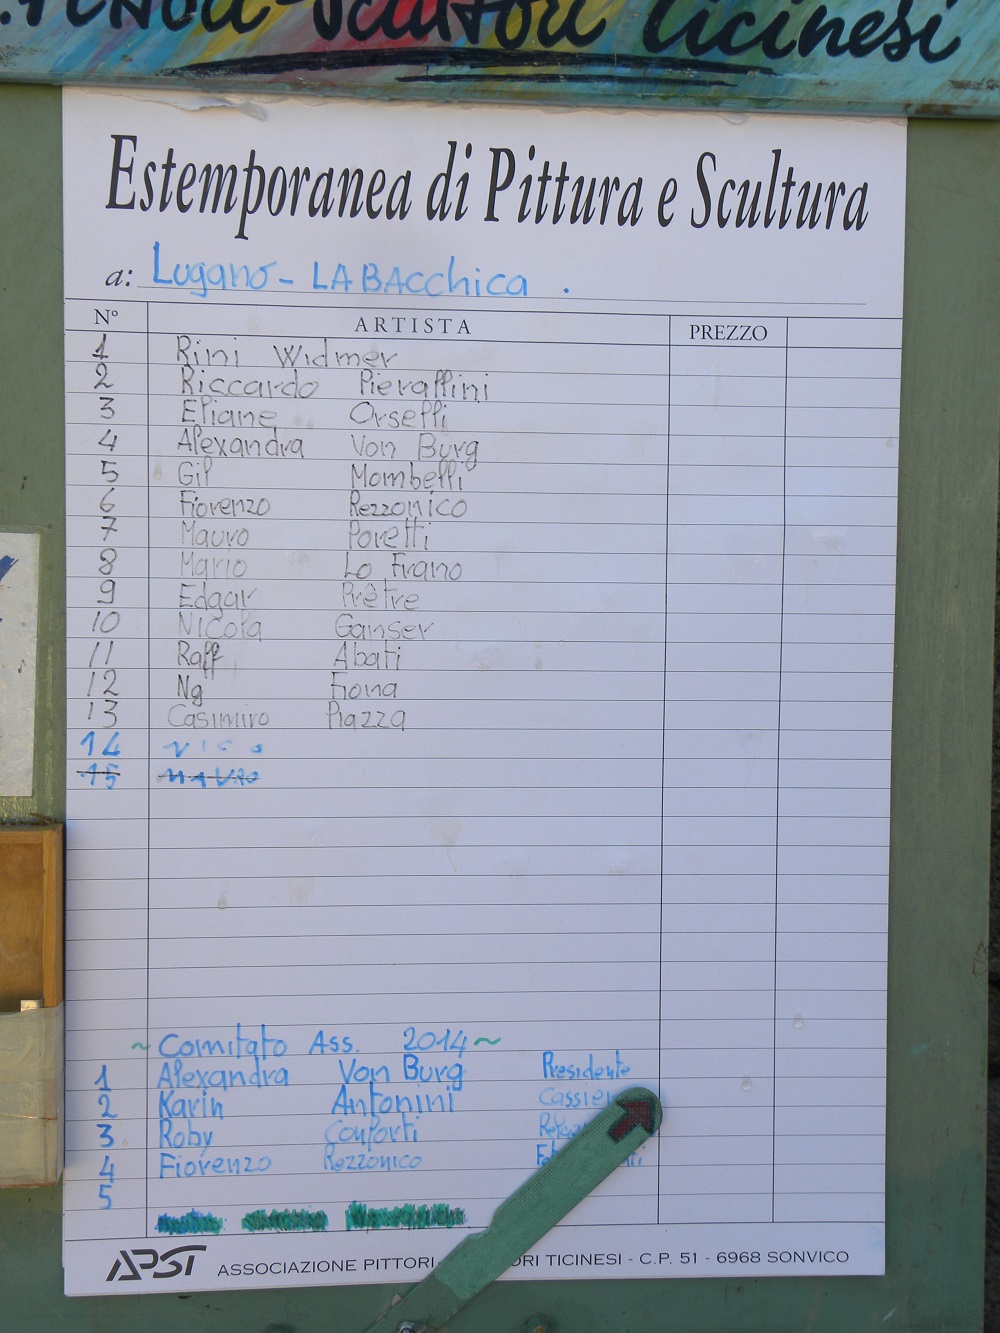 Scultori Ticinesi
Estemporanea di Pittura e Scultura
a: Lugano - LA BAcchica .
N° ARTISTA PREZZO
1 Rini Widmer
2 Riccardo Pierallini
3 Eliane Orselli
4 Alexandra Von Burg
5 Gil Mombelli
6 Fiorenzo Rezzonico
7 Mauro Poretti
8 Mario Lo Frano
9 Edgar Prêtre
10 Nicola Ganser
11 Raff Abati
12 Ng Fiona
13 Casimiro Piazza
14
15 MAURO
~ Comitato Ass. 2014 ~
1 Alexandra Von Burg Presidente
2 Karin Antonini
3 Roby Conforti
4 Fiorenzo Rezzonico
5
APST ASSOCIAZIONE PITTORI - TICINESI - C.P. 51 - 6968 SONVICO